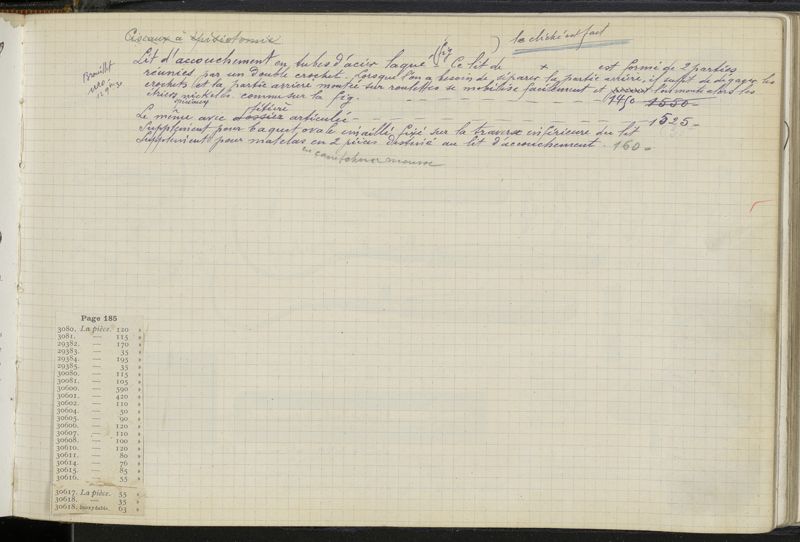 Ciseaux à épisiotomie
le cliché est fait
Brouillet
Lit d'accouchement en tubes d'acier laqué (fig ) Ce lit de + est formé de 2 parties
réunies par un double crochet. Lorsque l'on a besoin de séparer la partie arrière, il suffit de dégager les
crochets et la partie arrière montée sur roulettes se mobilise facilement et
étriers nickelés comme sur la fig. 1450 1550
Le même avec dossier articulé 1525
Supplément pour baquet ovale émaillé fixé sur la traverse inférieure du lit
Supplément pour matelas en 2 pièces destiné au lit d'accouchement. 160
en caoutchouc mousse
Page 185
3080. La pièce. 120 »
3081. — 115 »
29382. — 170 »
29383. — 35 »
29384. — 195 »
29385. — 35 »
30080. — 115 »
30081. — 105 »
30600. — 590 »
30601. — 420 »
30602. — 110 »
30604. — 50 »
30605. — 90 »
30606. — 120 »
30607. — 110 »
30608. — 100 »
30610. — 120 »
30611. — 80 »
30614. — 76 »
30615. — 85 »
30616. — 55 »
30617. La pièce. 55 »
30618. — 35 »
30618. Inoxydable. 63 »